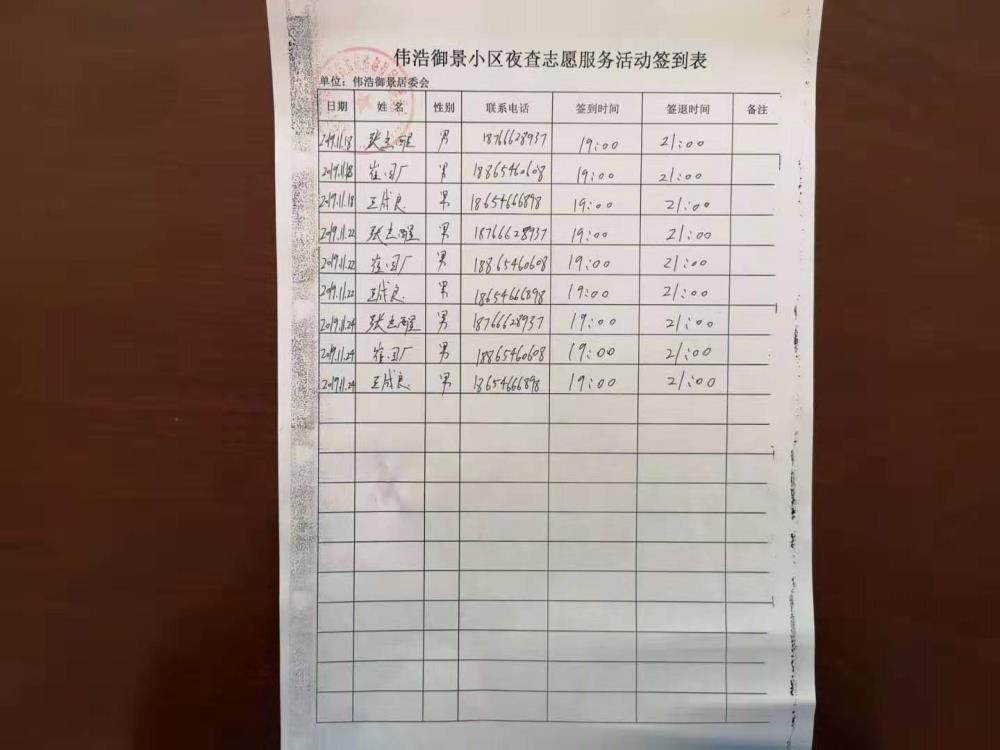 伟浩御景小区夜查志愿服务活动签到表
单位：伟浩御景居委会
日期 姓名 性别 联系电话 签到时间 签退时间 备注
2019.11.18 张志醒 男 18766628937 19:00 21:00
2019.11.18 崔国厂 男 18865460608 19:00 21:00
2019.11.18 王成良 男 18654666898 19:00 21:00
2019.11.22 张志醒 男 18766628937 19:00 21:00
2019.11.22 崔国厂 男 18865460608 19:00 21:00
2019.11.22 王成良 男 18654666898 19:00 21:00
2019.11.24 张志醒 男 18766628937 19:00 21:00
2019.11.24 崔国厂 男 18865460608 19:00 21:00
2019.11.24 王成良 男 18654666898 19:00 21:00